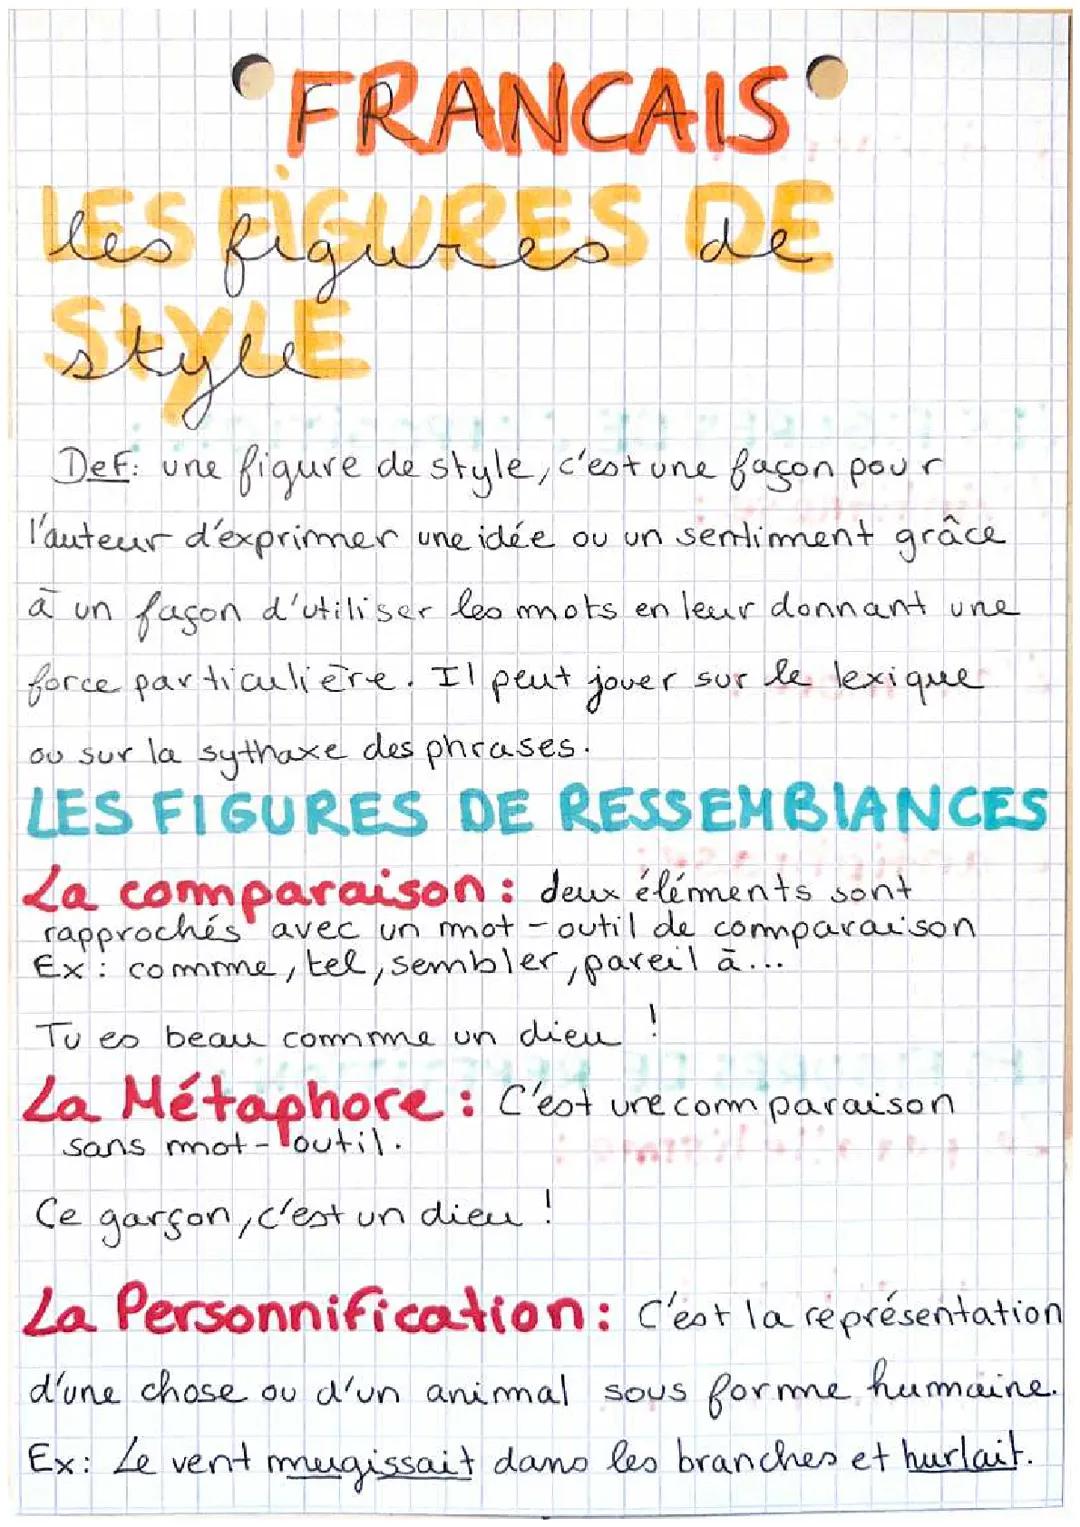 FRANCAIS
LES FIGURES DE
les figures de
STYLE
style
Def: une figure de style, c'est une façon pour
l'auteur d'exprimer une idée ou un sentiment grâce
à un façon d'utiliser les mots en leur donnant une
force particulière. Il peut jouer sur le lexique
ou sur la sythaxe des phrases.
LES FIGURES DE RESSEMBlANCES
La comparaison : deux éléments sont
rapprochés avec un mot-outil de comparaison
Ex : comme, tel, sembler, pareil à...
Tu es beau comme un dieu !
La Métaphore : C'est une comparaison
sans mot-outil.
Ce garçon, c'est un dieu !
La Personnification : C'est la représentation
d'une chose ou d'un animal sous forme humaine.
Ex: Le vent mugissait dans les branches et hurlait.